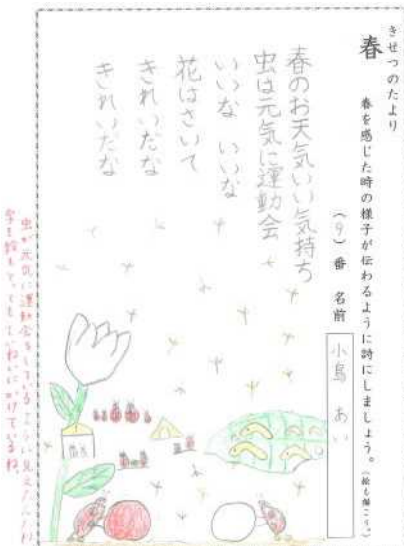 きせつのたより
春
春を感じた時の様子が伝わるように詩にしましょう。(絵も描こう。)
(9)番 名前 小島 あい
春のお天気いい気持ち
虫は元気に運動会
いいな いいな
花はさいて
きれいだな
きれいだな
虫が元気に運動会をしている
字も絵もとってもていねいにかけているね。